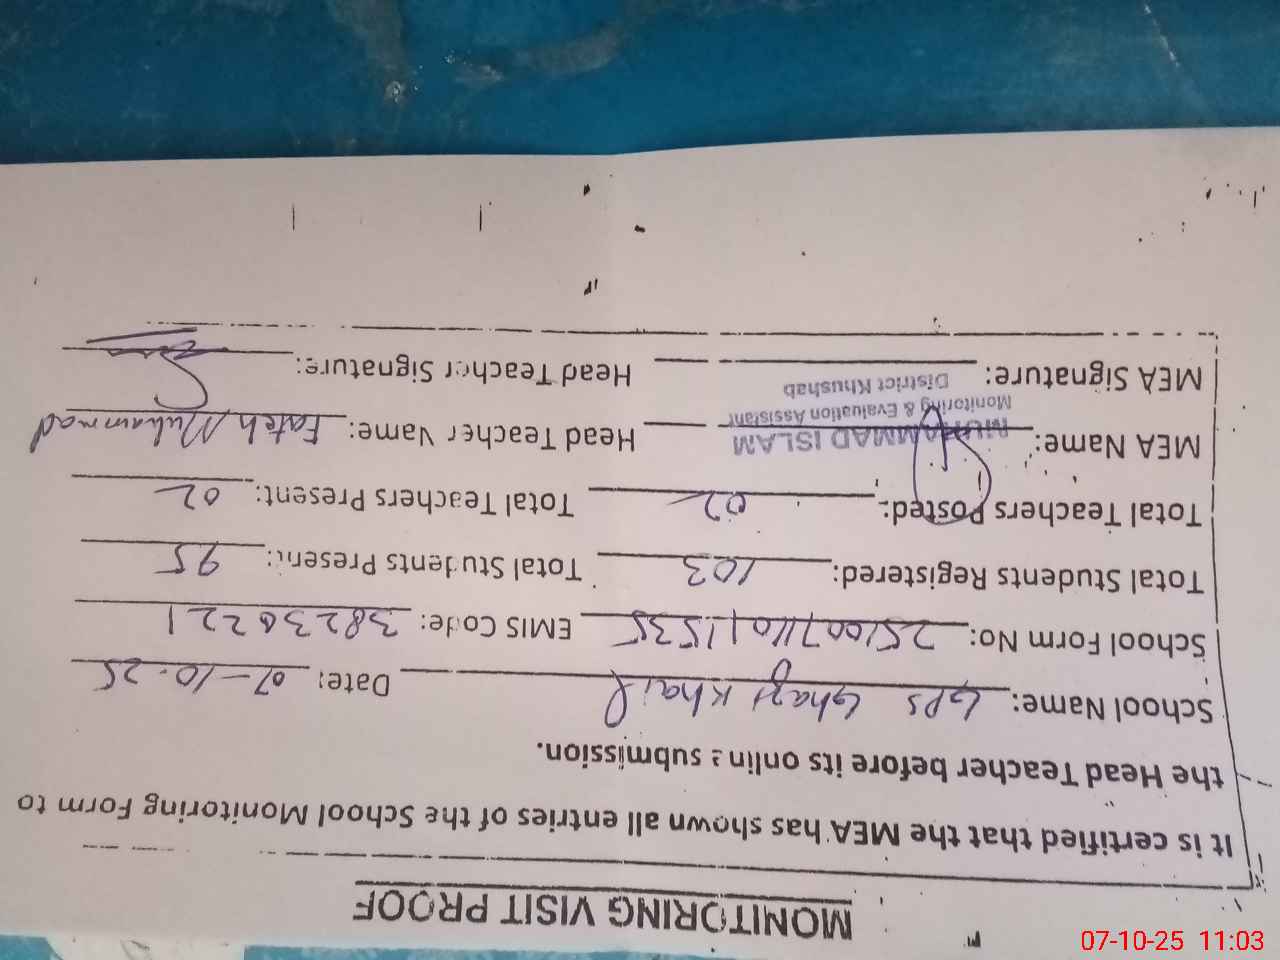 MONITORING VISIT PROOF
It is certified that the MEA has shown all entries of the School Monitoring Form to
the Head Teacher before its online submission.
School Name: GPS Ghazi Khail Date: 07-10-25
School Form No: EMIS Code: 38230221
Total Students Registered: 103 Total Students Present: 95
Total Teachers Posted: 02 Total Teachers Present: 02
MEA Name: MUHAMMAD ISLAM Head Teacher Name: Fateh Muhammad
Monitoring & Evaluation Assistant
District Khushab
MEA Signature: Head Teacher Signature:
07-10-25 11:03